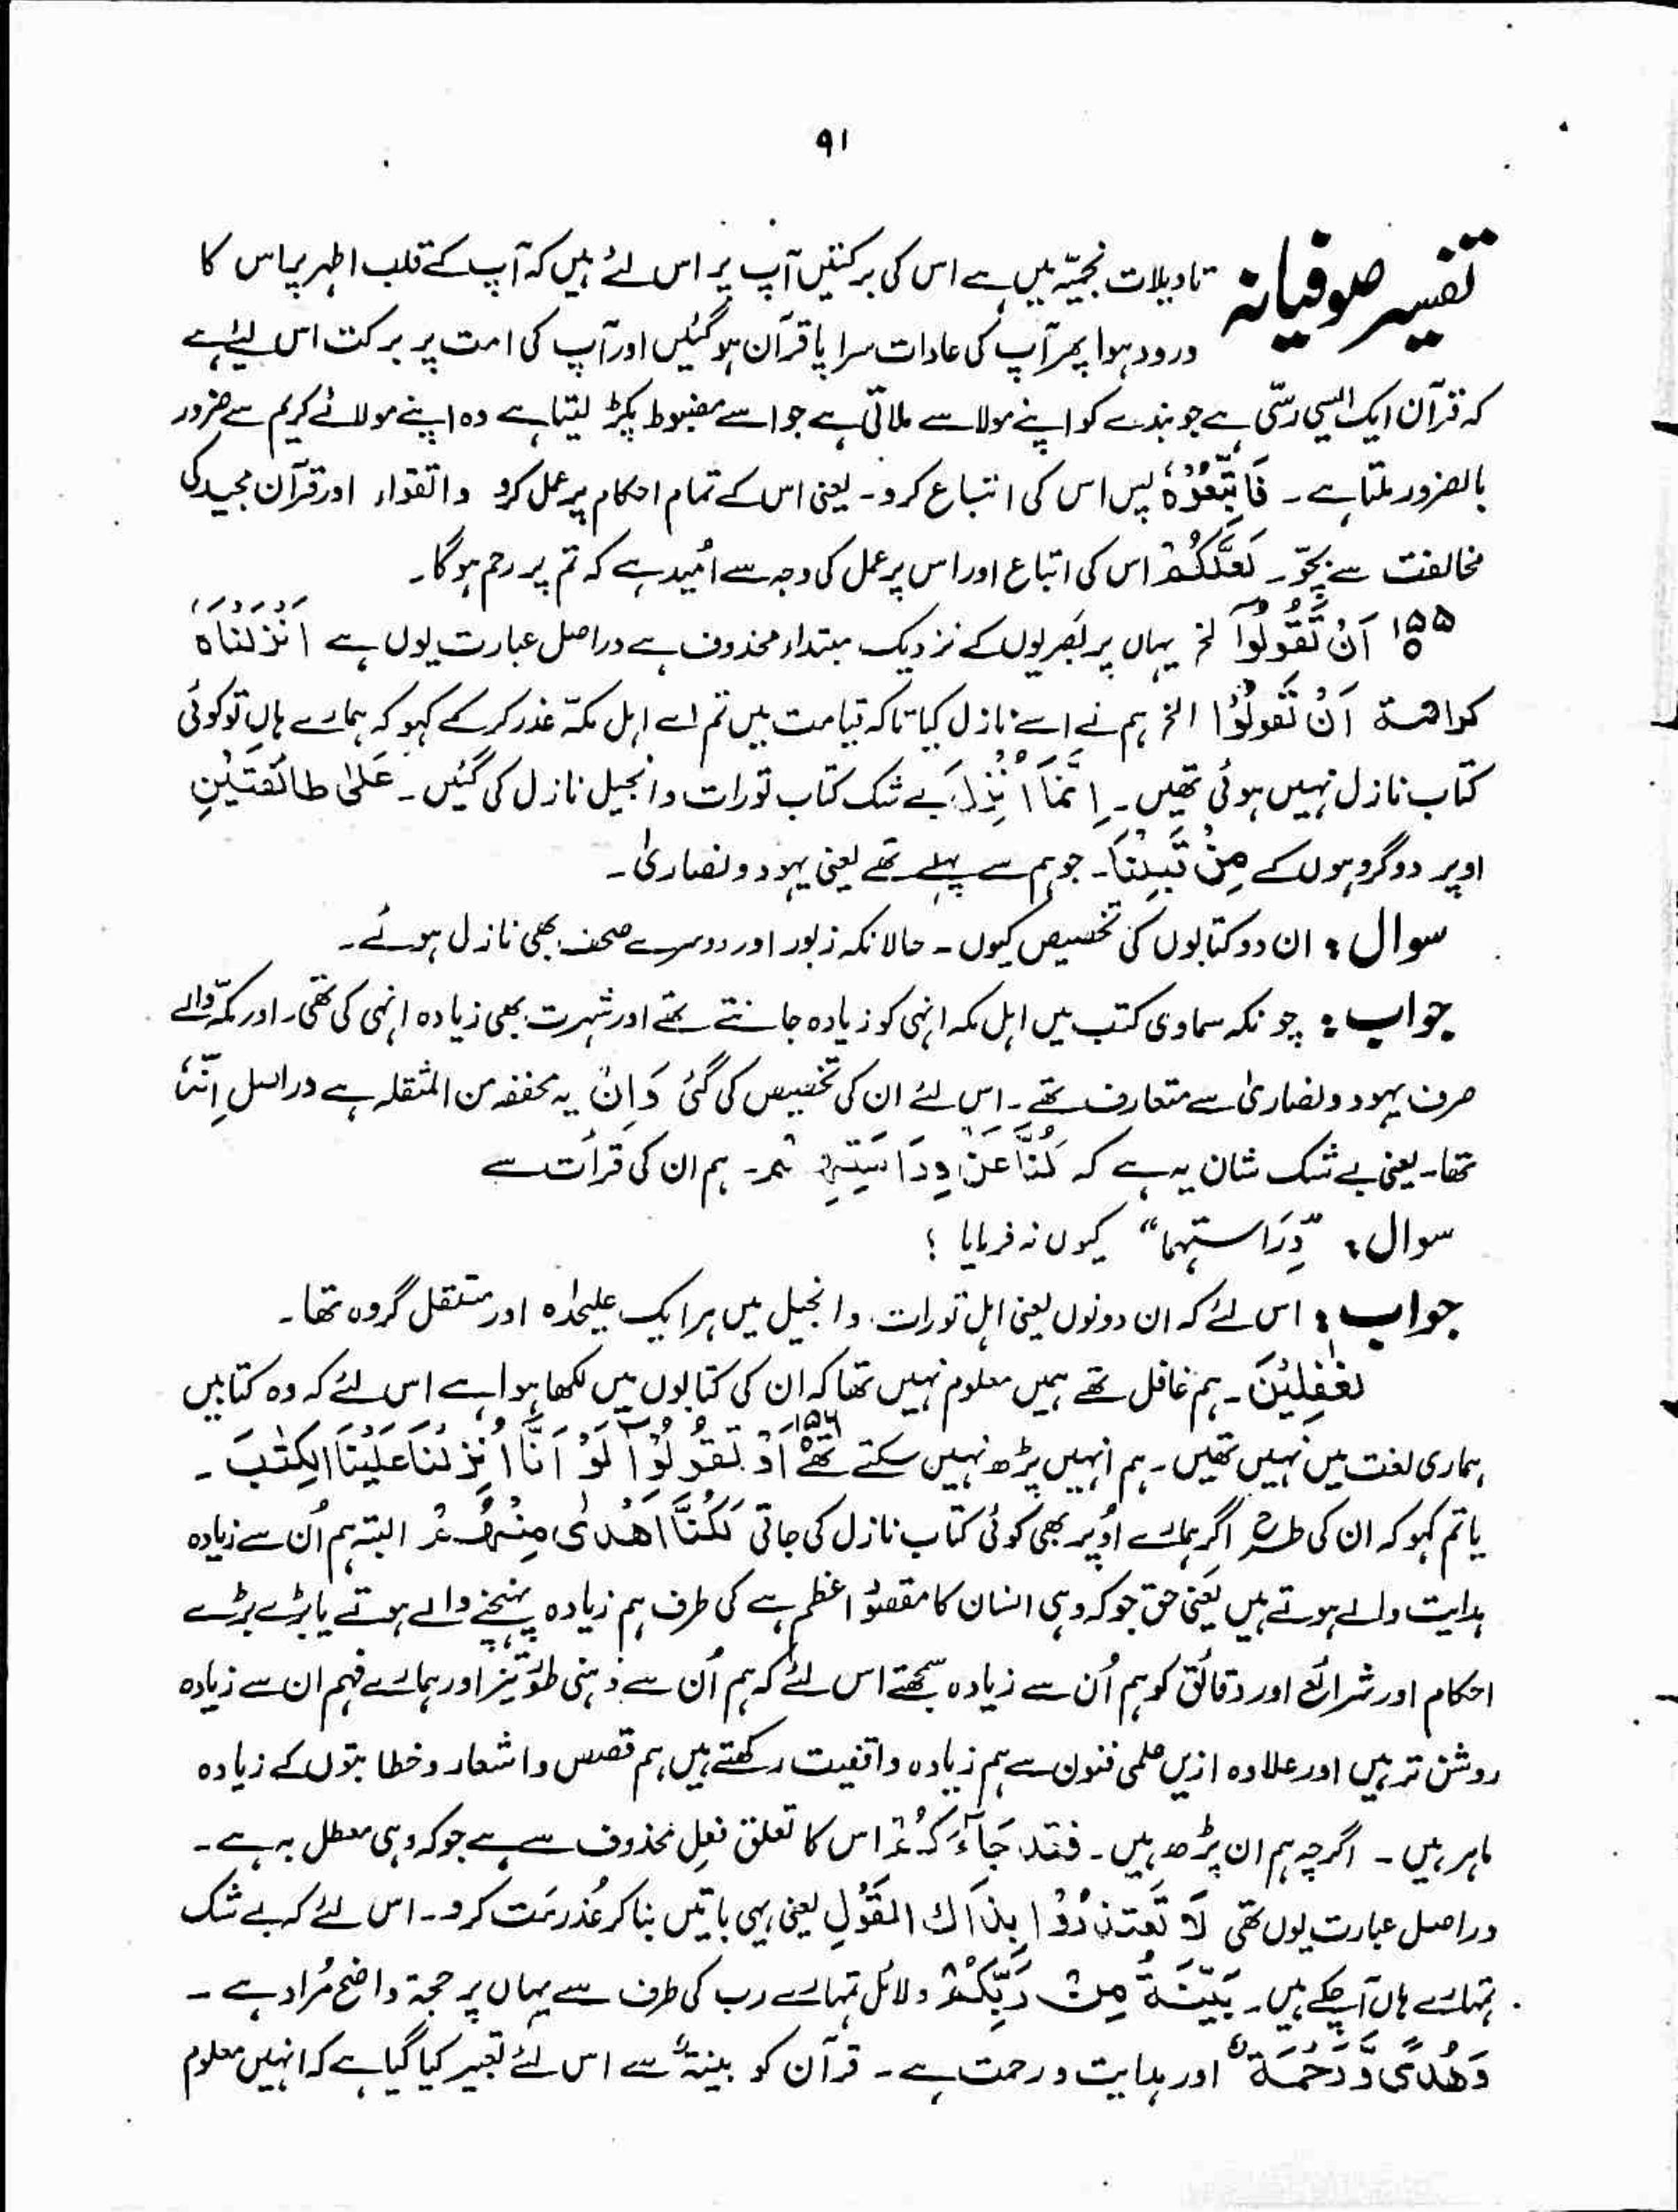 ۹۱
تفسیر صوفیانہ تاویلات نجمیّہ میں ہے اس کی برکتیں آپ پر اس لئے ہیں کہ آپ کے قلب اطہر پر اس کا
ورود ہوا پھر آپ کی عادات سراپا قرآن ہو گئیں اور آپ کی امت پر برکت اس لیئے ہے
کہ قرآن ایک ایسی رسّی ہے جو بندے کو اپنے مولا سے ملاتی ہے جو اسے مضبوط پکڑ لیتا ہے وہ اپنے مولائے کریم سے ضرور
بالضرور ملتا ہے ۔ فَاتَّبِعُوْهُ پس اس کی اتباع کرو ۔ یعنی اس کے تمام احکام پر عمل کرو واتقواء اور قرآن مجید کی
مخالفت سے بچّو ۔ لَعَلَّكُمْ اس کی اتباع اور اس پر عمل کی وجہ سے اُمید ہے کہ تم پر رحم ہوگا ۔
۱۵۵ اَنْ تَقُوْلُوْٓا لخ یہاں پر بَصریوں کے نزدیک مبتداء محذوف ہے دراصل عبارت یوں ہے اَنْزَلْنَاهُ
كراهة اَنْ تَقُولُوْا الخ ہم نے اسے نازل کیا تاکہ قیامت میں تم اے اہل مکّہ عذر کرکے کہو کہ ہمارے ہاں تو کوئی
کتاب نازل نہیں ہوئی تھیں ۔ اِنَّمَآ اُنْزِلَ بے شک کتاب تورات و انجیل نازل کی گئیں ۔ عَلیٰ طائفَتَیْنِ
اوپر دو گروہوں کے مِنْ قَبْلِنَا ۔ جو ہم سے پہلے تھے یعنی یہود و نصاریٰ ۔
سوال : ان دو کتابوں کی تخصیص کیوں ۔ حالانکہ زبور اور دوسرے صحف بھی نازل ہوئے ۔
جواب : چونکہ سماوی کتب میں اہل مکہ انہی کو زیادہ جانتے تھے اور شہرت بھی زیادہ انہی کی تھی ۔ اور مکّہ والے
صرف یہود و نصاریٰ سے متعارف تھے ۔ اس لئے ان کی تخصیص کی گئی وَاِنْ یہ مخففہ من المثقلہ ہے دراصل اِنَّہٗ
تھا ۔ یعنی بے شک شان یہ ہے کہ كُنَّا عَنْ دِرَاسَتِهِمْ ۔ ہم ان کی قرأت سے
سوال : ”دِرَاستہما“ کیوں نہ فرمایا ؟
جواب : اس لئے کہ ان دونوں یعنی اہل تورات و انجیل میں ہر ایک علیحدٰہ اور مستقل گروہ تھا ۔
لَغٰفِلِیْنَ ۔ ہم غافل تھے ہمیں معلوم نہیں تھا کہ ان کی کتابوں میں لکھا ہوا ہے اس لئے کہ وہ کتابیں
ہماری لغت میں نہیں تھیں ۔ ہم انہیں پڑھ نہیں سکتے تھے ۱۵۶ اَوْ تَقُوْلُوْٓا لَوْ اَنَّا اُنْزِلْنَا عَلَيْنَا الْكِتٰبَ ۔
یا تم کہو کہ ان کی طرح اگر ہمارے اُوپر بھی کوئی کتاب نازل کی جاتی لَكُنَّا اَهْدٰى مِنْهُمْ البتہ ہم اُن سے زیادہ
ہدایت والے ہوتے ہیں یعنی حق جو کہ وہی انسان کا مقصودِ اعظم ہے کی طرف ہم زیادہ پہنچنے والے ہوتے یا بڑے بڑے
احکام اور شرائع اور دقائق کو ہم اُن سے زیادہ سمجھتے اس لئے کہ ہم اُن سے ذہنی طور تیز اور ہمارے فہم ان سے زیادہ
روشن تر ہیں اور علاوہ ازیں علمی فنون سے ہم زیادہ واقفیت رکھتے ہیں ہم قصص و اشعار و خطابتوں کے زیادہ
ماہر ہیں ۔ اگرچہ ہم ان پڑھ ہیں ۔ فقد جَآءَكُمْ اس کا تعلق فعل محذوف سے ہے جو کہ وہی معطل بہ ہے ۔
دراصل عبارت یوں تھی لَا تَعتذرُوْا بِذَاكَ القَوْلِ یعنی یہی باتیں بنا کر عُذر مَت کرو ۔ اس لئے کہ بے شک
تمہارے ہاں آ چکے ہیں ۔ بَيِّنَةٌ مِنْ رَبِّكُمْ دلائل تمہارے رب کی طرف سے یہاں پر حجۃ واضح مُراد ہے ۔
وَهُدًى وَّرَحْمَةٌ اور ہدایت و رحمت ہے ۔ قرآن کو بینۃ سے اس لئے تعبیر کیا گیا ہے کہ انہیں معلوم